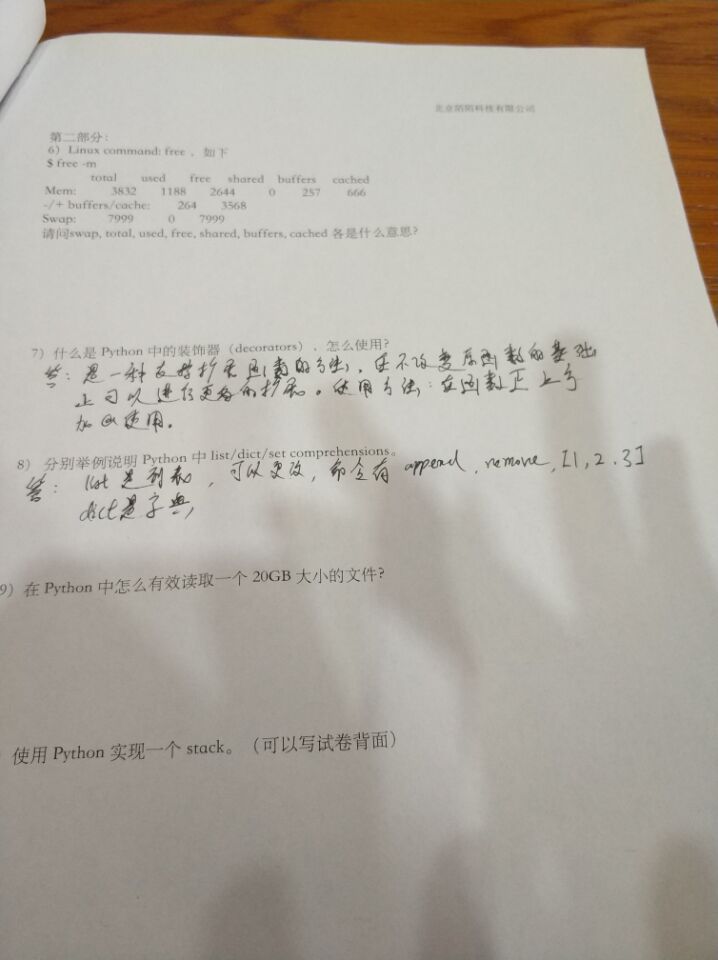 北京陌陌科技有限公司
第二部分:
6) Linux command: free ，如下
$ free -m
total used free shared buffers cached
Mem: 3832 1188 2644 0 257 666
-/+ buffers/cache: 264 3568
Swap: 7999 0 7999
请问swap, total, used, free, shared, buffers, cached 各是什么意思?
7) 什么是 Python 中的装饰器（decorators）、怎么使用?
答: 是一种支持扩展函数的方法, 在不改变原函数的基础
上可以进行更好的扩展。使用方法: 在函数正上方
加@使用。
8) 分别举例说明 Python 中 list/dict/set comprehensions。
答: list 是列表, 可以更改, 命令有 append, remove, [1, 2. 3]
dict是字典,
9) 在 Python 中怎么有效读取一个 20GB 大小的文件?
使用 Python 实现一个 stack。（可以写试卷背面）